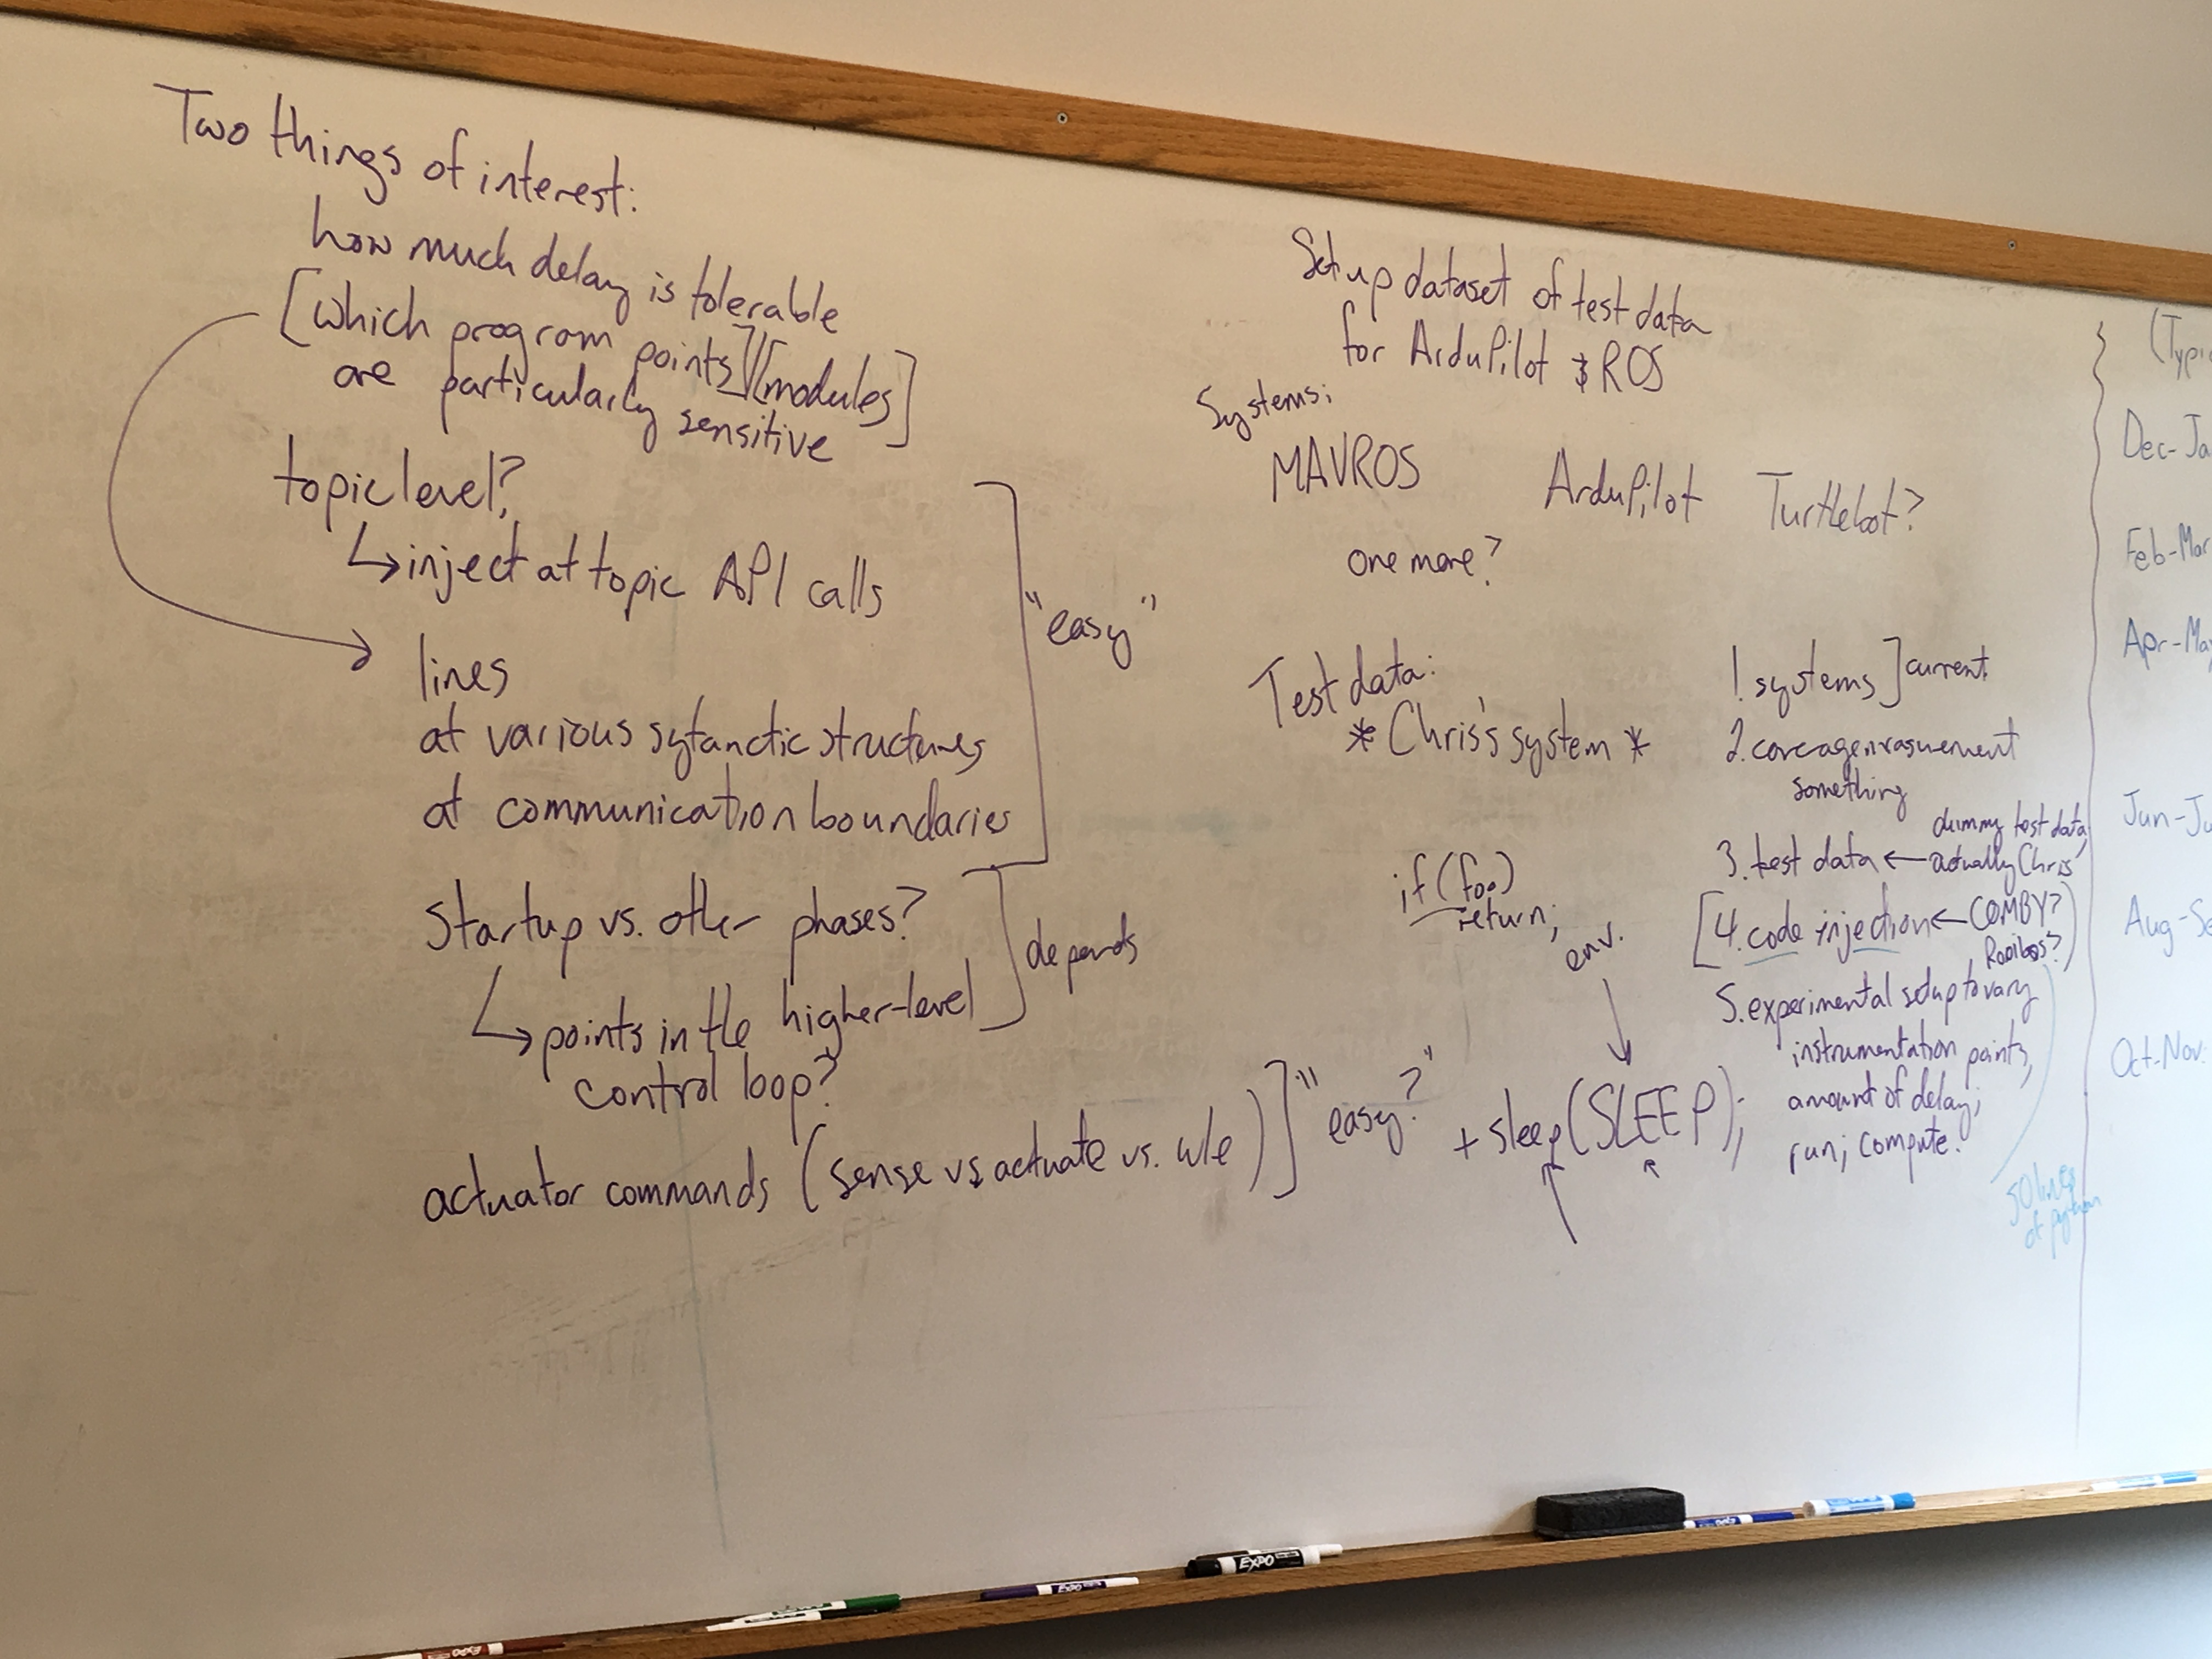 Two things of interest:
how much delay is tolerable
[which program points]/[modules]
are particularly sensitive
topic level?
↳ inject at topic API calls
lines
at various sytanctic structures
at communication boundaries
"easy"
startup vs. other phases?
↳ points in the higher-level
control loop?
] depends
actuator commands (sense vs actuate vs. w/e) ] "easy?"
Set up dataset of test data
for ArduPilot & ROS
Systems:
MAVROS ArduPilot Turtlebot?
one more?
Test data:
* Chris's system *
if (foo)
return;
env.
+ sleep(SLEEP);
1 systems ] current
2. coverage measurement
something
3. test data ← dummy test data,
actually Chris'
[4. code injection ← COMBY?
Rooibos?
5. experimental setup to vary
instrumentation points,
amount of delay;
run; compute.
50 lines
of python
Dec-Ja
Feb-Mar
Apr-May
Jun-Ju
Aug-Se
Oct-Nov:
EXPO
EXPO